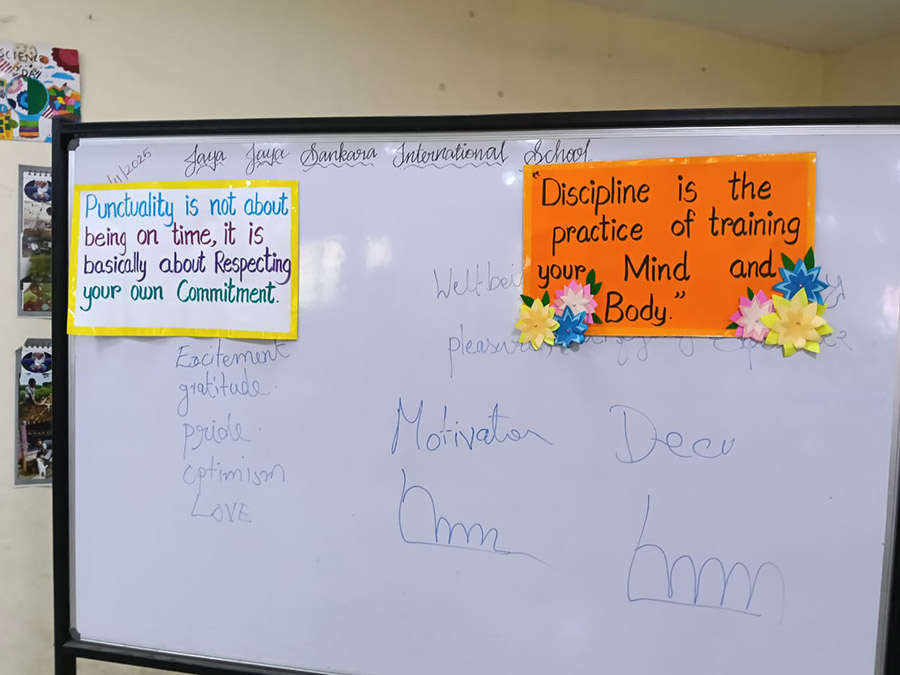 SCIENCE
DAY
/11/2025
Jaya Jaya Sankara International School
Punctuality is not about
being on time, it is
basically about Respecting
your own Commitment.
"Discipline is the
practice of training
your Mind and
Body."
Well-bein
pleasure,
Excitement
gratitude.
pride.
optimism
LOVE
Motivation